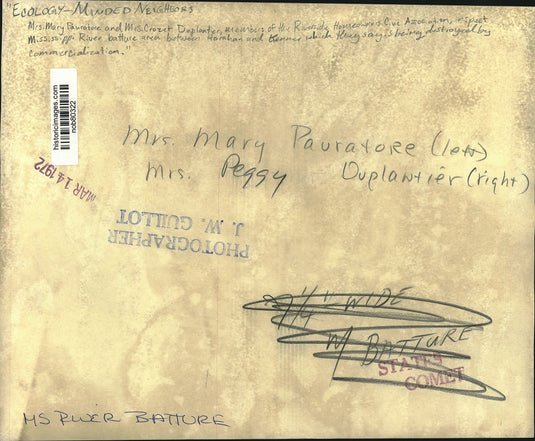 "Ecology-Minded Neighbors
Mrs. Mary Pauratore and Mrs. Crozet Duplantier, members of the Riverside Homeowners Civic Association, inspect
Mississippi River batture area between Harahan and Kenner which they say is being destroyed by
commercialization."
historicimages.com
nob80322
MAR 14 1972
Mrs. Mary Pauratore (left)
Mrs. Peggy Duplantier (right)
PHOTOGRAPHER
J. W. GUILLOT
7 1/4" WIDE
M BATTURE
STATES
COMET
MS RIVER BATTURE